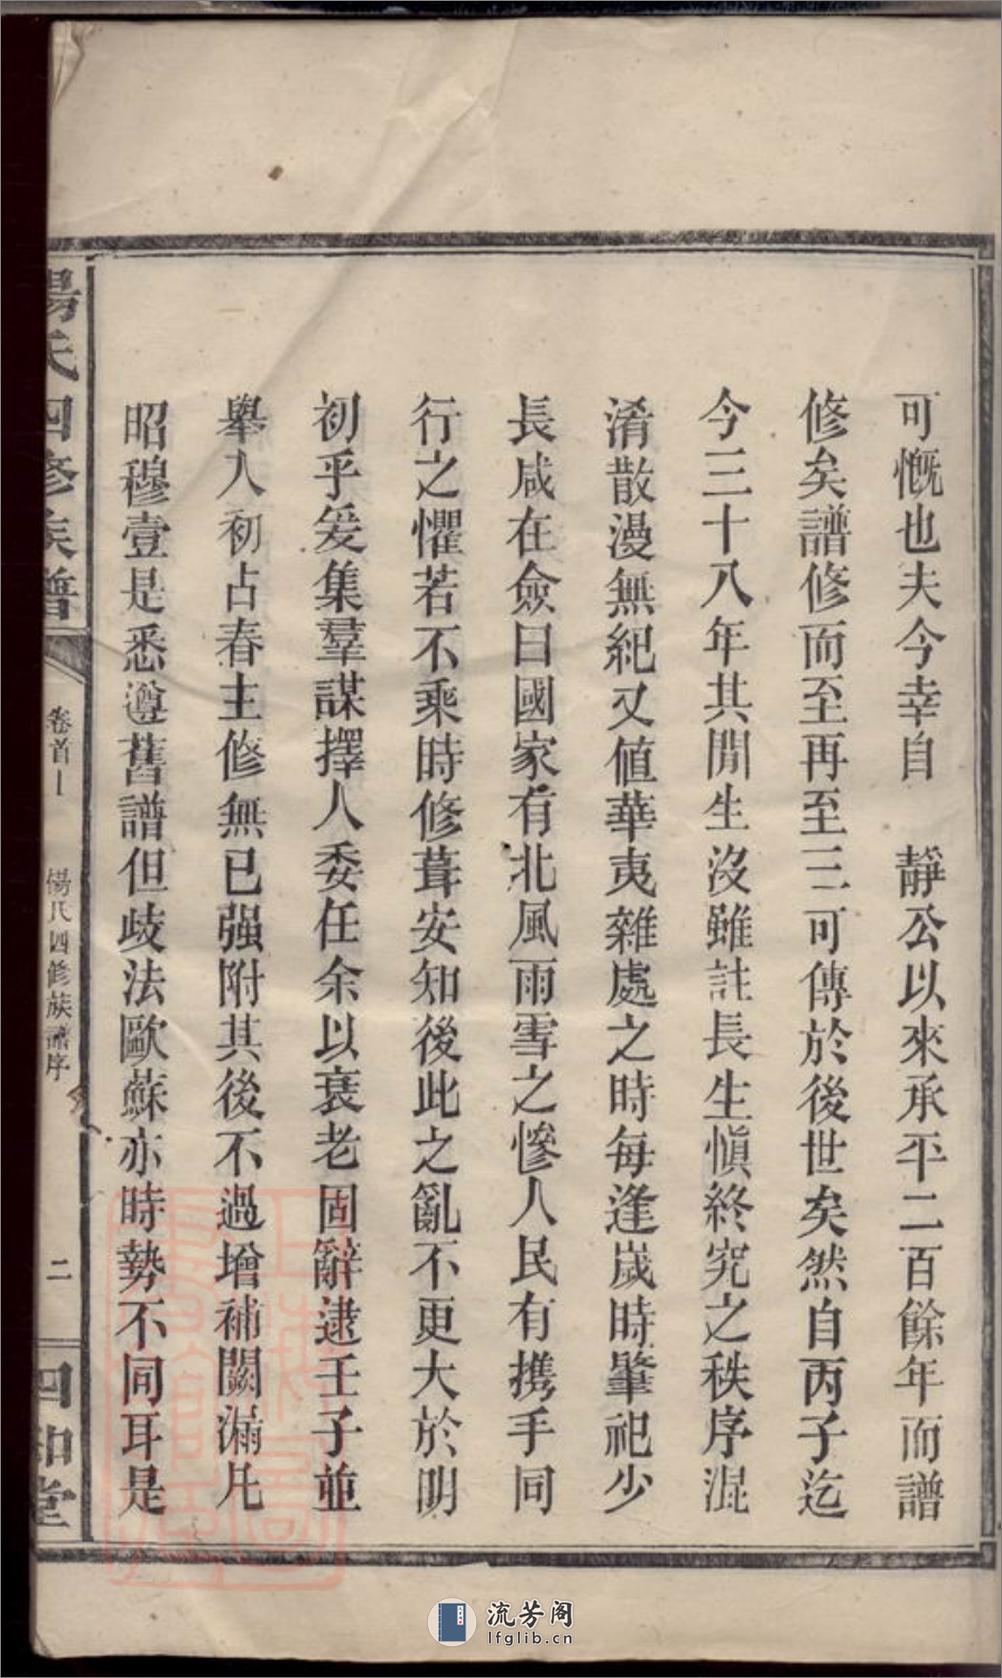 可慨也夫今幸自　靜公以來承平二百餘年而譜
修矣譜修而至再至三可傳於後世矣然自丙子迄
今三十八年其閒生沒雖註長生愼終究之秩序混
淆散漫無紀又値華夷雜處之時每逢歲時肇祀少
長咸在僉曰國家有北風雨雪之慘人民有携手同
行之懼若不乘時修葺安知後此之亂不更大於明
初乎爰集羣謀擇人委任余以衰老固辭逮壬子並
舉入初占春主修無已强附其後不過增補闕漏凡
昭穆壹是悉遵舊譜但歧法歐蘇亦時勢不同耳是
楊氏四修族譜
卷首一
楊氏四修族譜序
二
四知堂
流芳阁
lfglib.cn